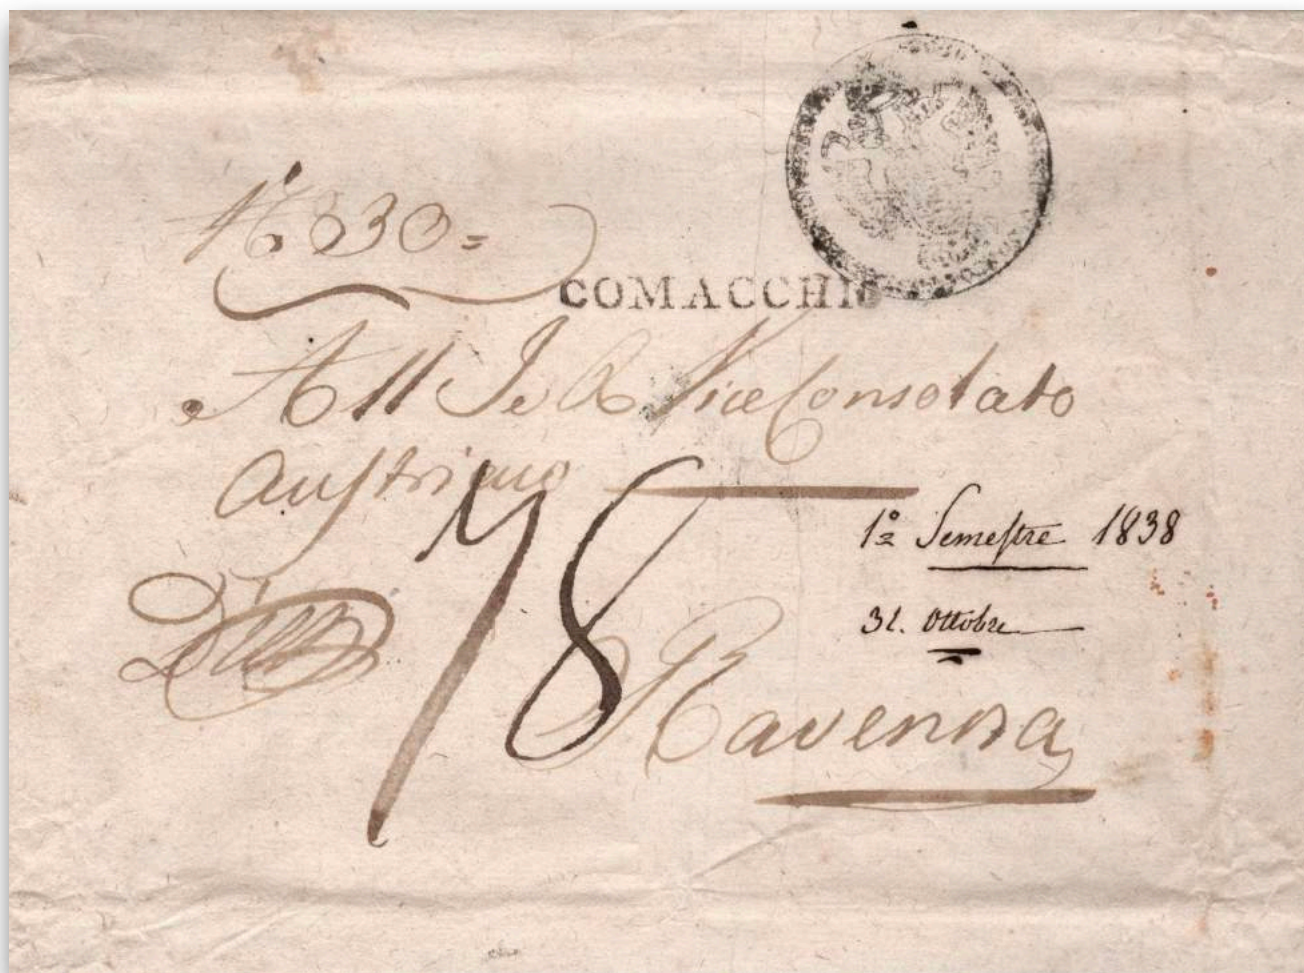 N° 630=
COMACCHIO
All' I e R Vice Consolato
Austriaco
78
1° Semestre 1838
31. Ottobre
Ravenna